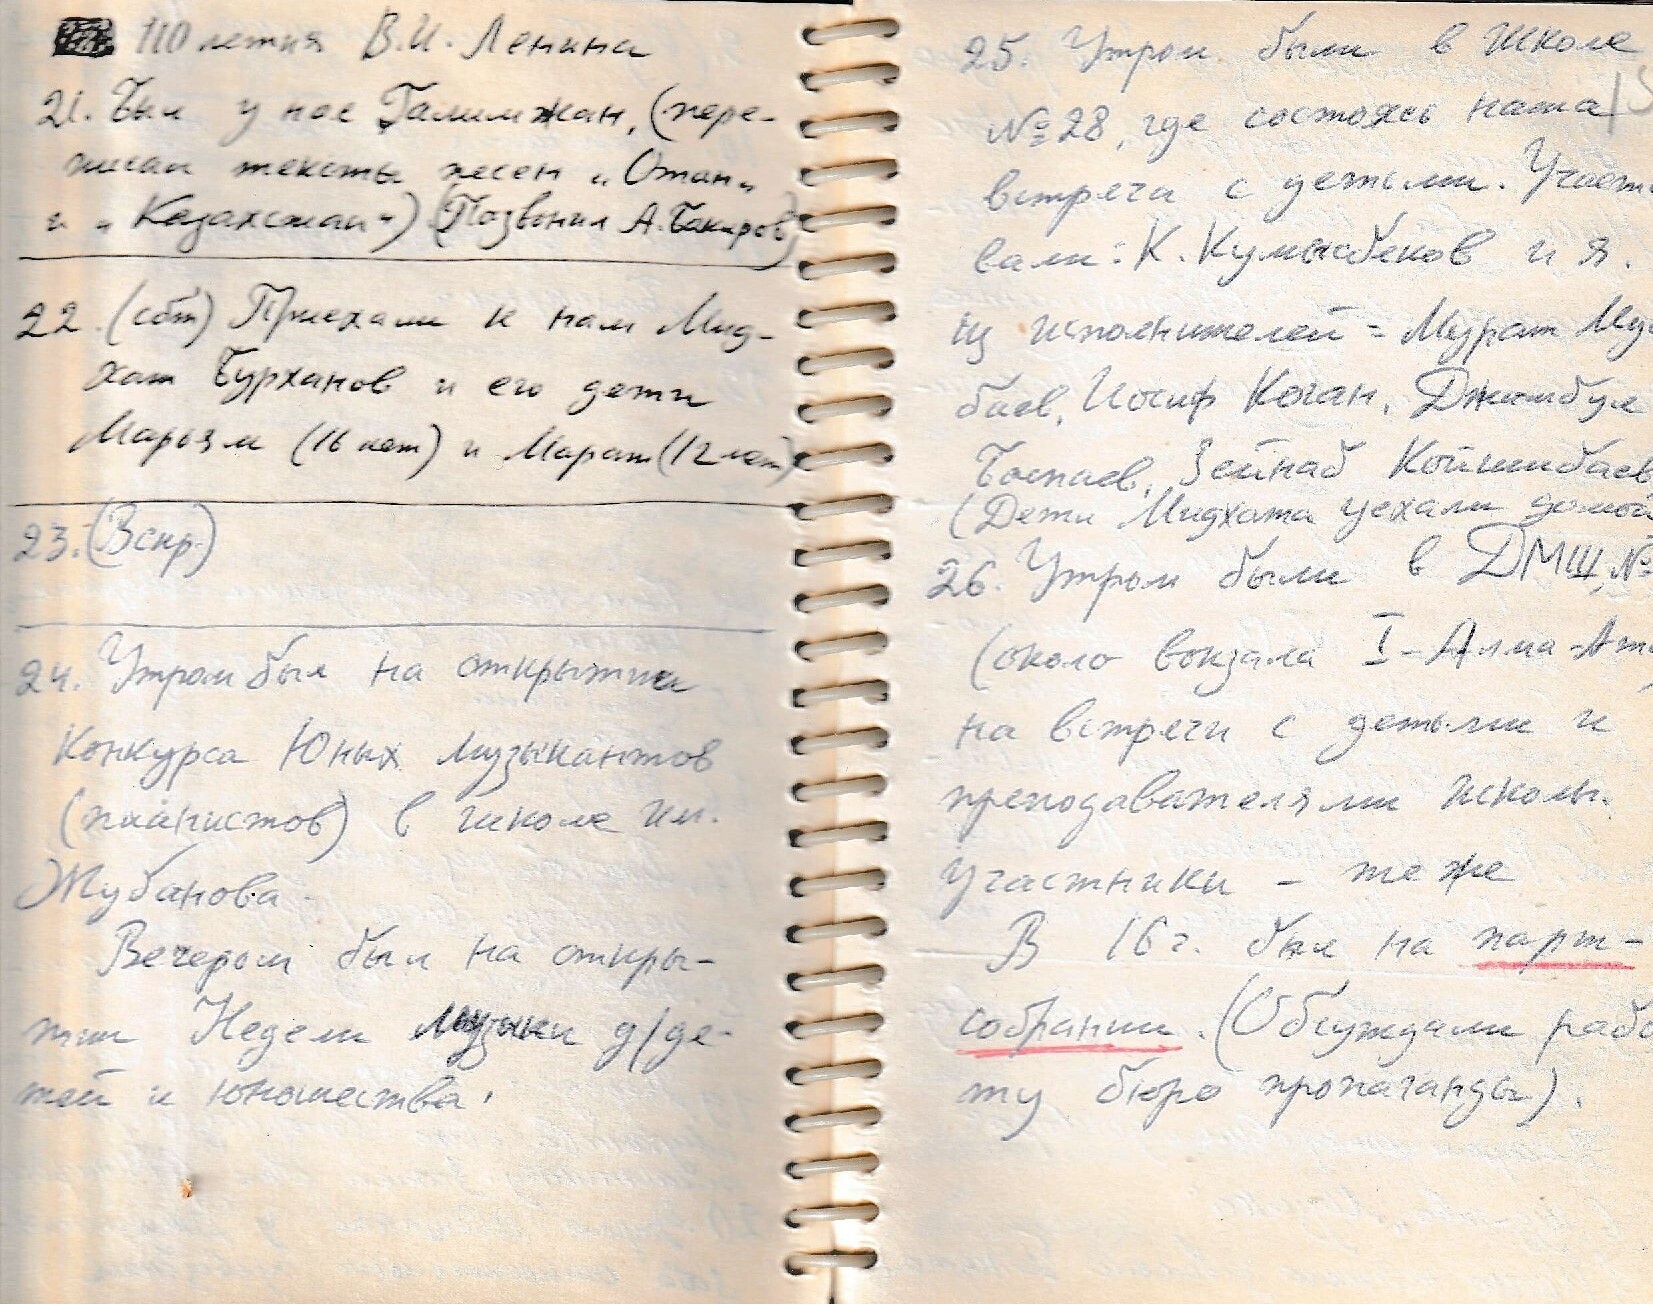 110 летия В.И. Ленина
21. Был у нас Галимжан, (пере-
писал тексты песен „Отан„
и „Казахстан“) (Позвонил А. Бакиров)
22. (сбт) Приехали к нам Мид-
хат Бурханов и его дети
Марьям (16 лет) и Марат (12 лет)
23. (Вскр.)
24. Утром был на открытии
Конкурса Юных Музыкантов
(пианистов) в школе им.
Жубанова.
Вечером был на откры-
тии Недели Музыки д/де-
тей и юношества.
25. Утром были в школе
№28, где состоясь наша
встреча с детьми. Участ
вали: К. Кумысбеков и я.
Из исполнителей = Мурат Му
баев, Иосиф Коган, Джамбул
Боспаев, Зейнаб Койшибаев
(Дети Мидхата уехали домой
26. Утром были в ДМШ №
(около вокзала I-Алма-Ат
на встречи с детьми и
преподавателями школы.
Участники - те же
В 16 г. был на парт-
собрании. (Обсуждали рабо
ту бюро пропаганды).